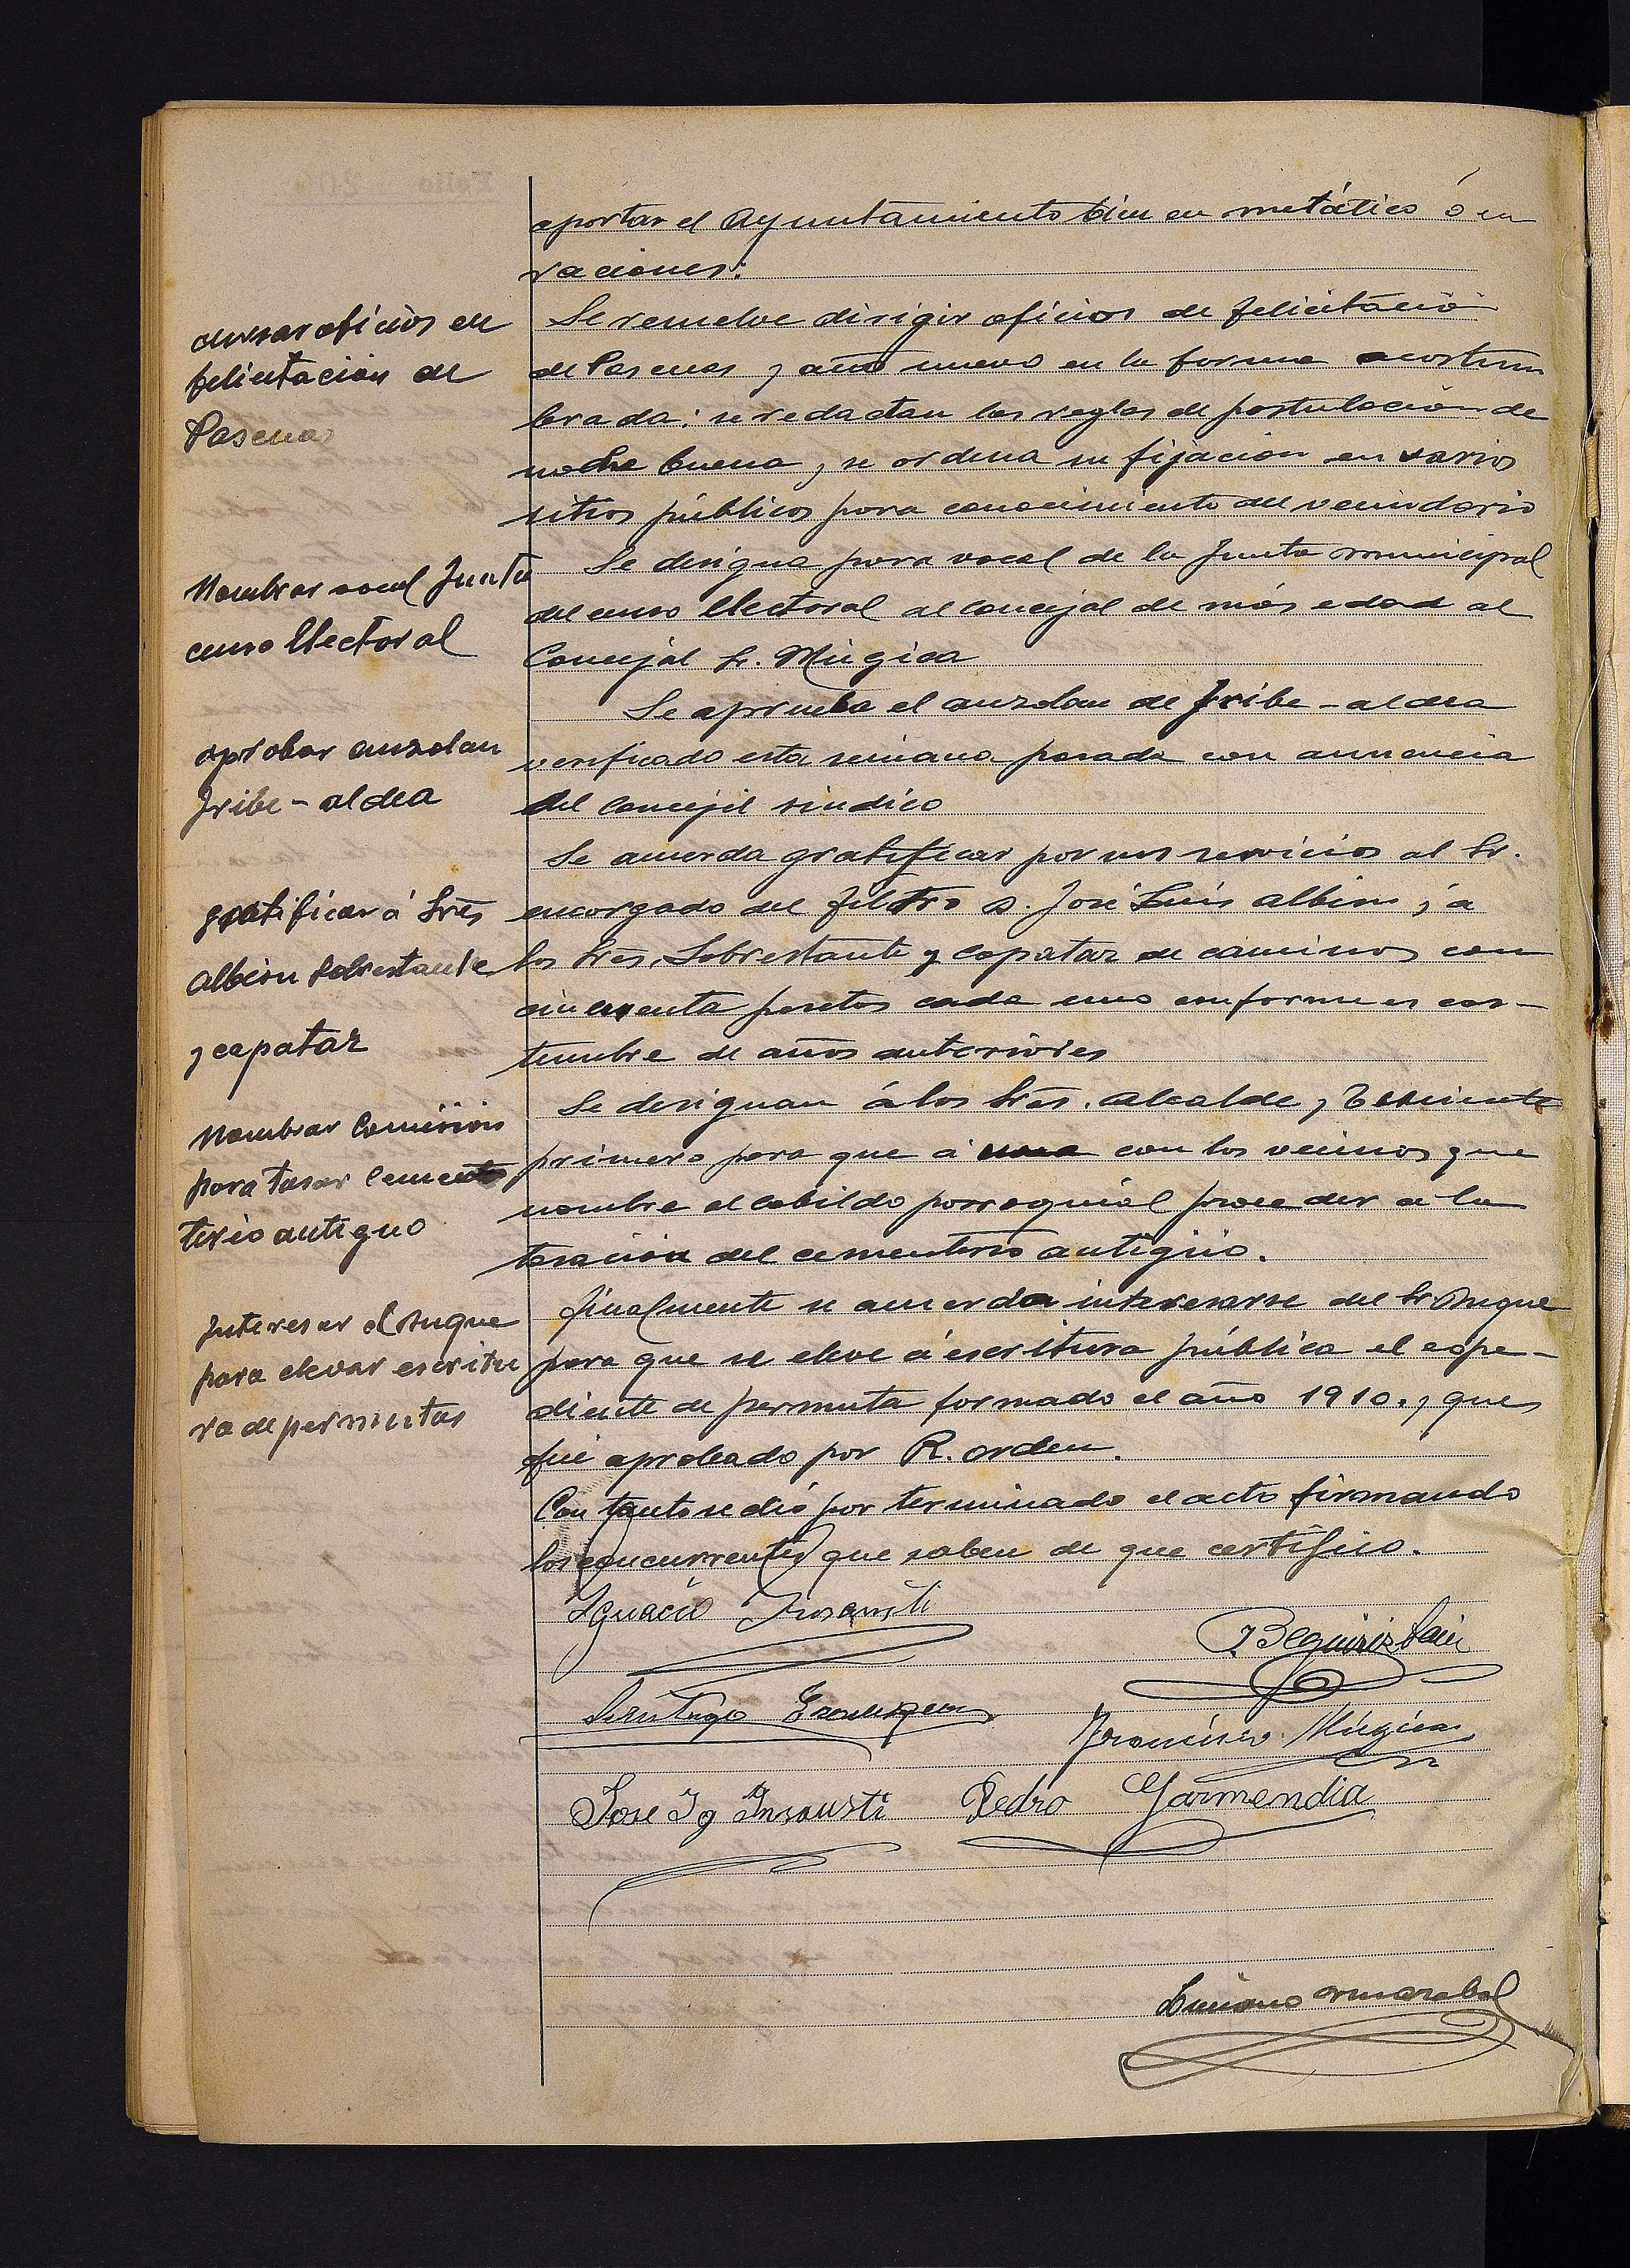 aportar el Ayuntamiento bien en metálico ó en
raciones.
cursar oficios de
felicitacion de
Pascuas
Se resuelve dirigir oficios de felicitació
de Pascuas y año nuevo en la forma acostum
brada: se redactan las reglas de postulacion de
noche buena, se ordena su fijacion en varios
sitios públicos para conocimiento del vecindario
Nombrar vocal Junta
censo Electoral
Se designa para vocal de la Junta municipal
del censo Electoral al concejal de más edad al
Concejal Sr. Múgica
aprobar auzolan
Iribe-aldea
Se aprueba el auzolan de Iribe-aldea
verificado esta semana pasada con anuencia
del Concejil sindico
gratificar á Sres
Albisu Sobrestante
y capataz
Se acuerda gratificar por sus servicios al Sr.
encargado del filtro D. José Luis Albisu, y a
los Sres. Sobrestante y capataz de caminos con
cincuenta pesetas cada uno conforme es cos-
tumbre de años anteriores
Nombrar Comision
para tasar cemen
terio antiguo
Se designan á los Sres. Alcalde, y Teniente
primero para que á una con los vecinos que
nombre el cabildo parroquial proceder a la
tasacion del cementerio antigüo.
Interesar al Duque
para elevar escritu
ra de permutas
Finalmente se acuerda interesarse del Sr Duque
para que se eleve á escritura pública el espe-
diente de permuta formado el año 1910. y que
fué aprobado por R. orden.
Con tanto se dió por terminado el acto firmando
los concurrentes que saben de que certifico.
Ignacio Insausti
B Eguiristain
Santiago
Francisco Múgica
Jose Ig Insausti Pedro Garmendia
Luciano Amarabal